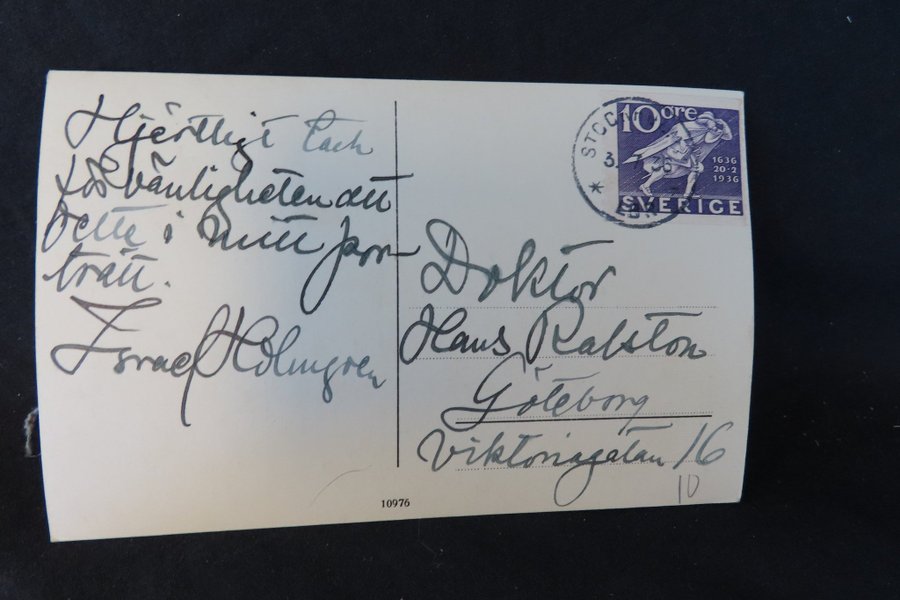 Hjärtligt tack
för vänligheten att
i mitt por
trätt.
Israel Holmgren
10 öre
1636
20-2
1936
SVERIGE
Doktor
Hans Ralston
Göteborg
Viktoriagatan 16
10
10976